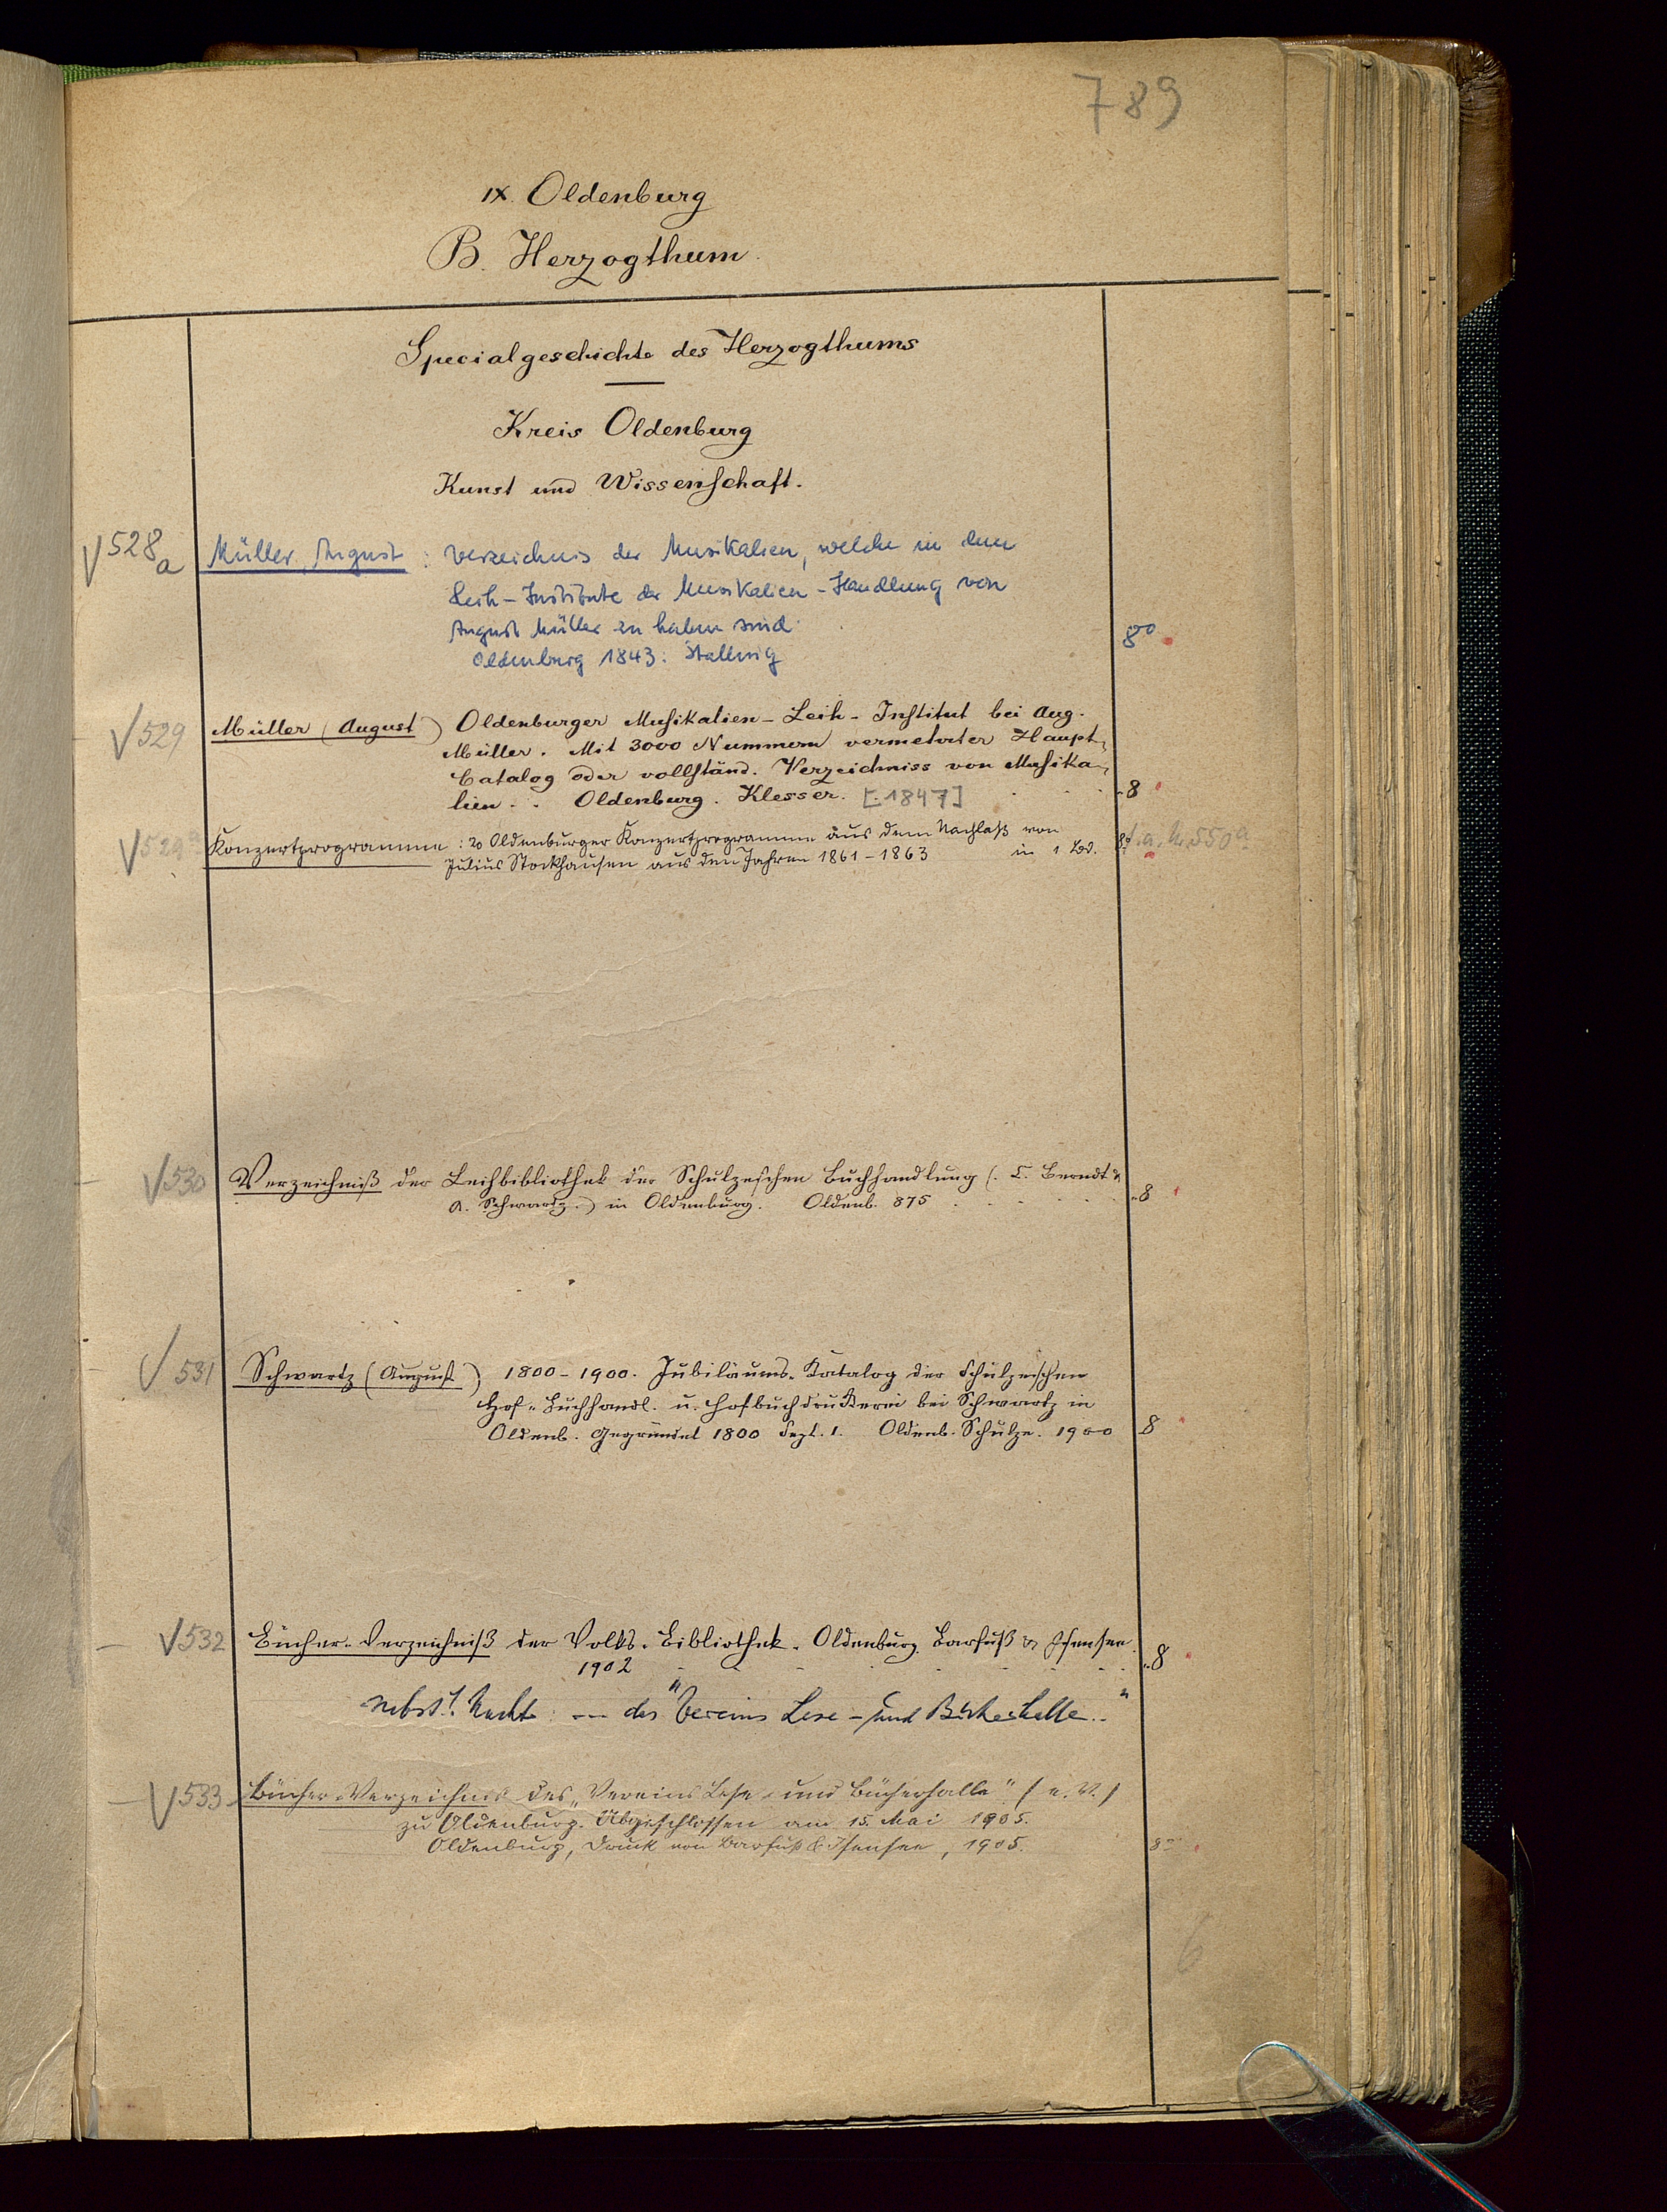 789
IX. Oldenburg
B. Herzogthum.
Specialgeschichte des Herzogthums
Kreis Oldenburg
Kunst und Wissenschaft.
√ 528a Müller, August : Verzeichnis der Musikalien, welche in dem
Leih-Institute der Musikalien-Handlung von
August Müller zu haben sind.
Oldenburg 1843: Stalling 8°
√ 529 Müller (August) Oldenburger Musikalien-Leih-Institut bei Aug.
Müller. Mit 3000 Nummern vermehrter Haupt-
Catalog oder vollständ. Verzeichniss von Musika-
lien. . Oldenburg. Klesser. [1847] 8
√ 529a Konzertprogramme : 20 Oldenburger Konzertprogramme aus dem Nachlaß von
Julius Stockhausen aus den Jahren 1861-1863 in 1 Bd. 8° s. a. h. 550a
√ 530 Verzeichniß der Leihbibliothek der Schulzeschen Buchhandlung (C. Berndt &
A. Schwartz.) in Oldenburg. Oldenb. 875 8
√ 531 Schwartz (August) 1800-1900. Jubiläums-Katalog der Schulzeschen
Hof-Buchhandl. u. Hofbuchdruckerei bei Schwartz in
Oldenb. Gegründet 1800 Sept. 1. Oldenb. Schulze. 1900 8
√ 532 Bücher-Verzeichniß der Volks-Bibliothek. Oldenburg. Barfuß & Isensee.
1902 8
nebst 1. Nachtr: — des "Vereins Lese- und Bücherhalle.."
√ 533 Bücher-Verzeichnis des „Vereins Lese- und Bücherhalle" (e. V.)
zu Oldenburg. Abgeschlossen am 15. Mai 1905.
Oldenburg, Druck von Barfuß & Isensee, 1905. 8°
6